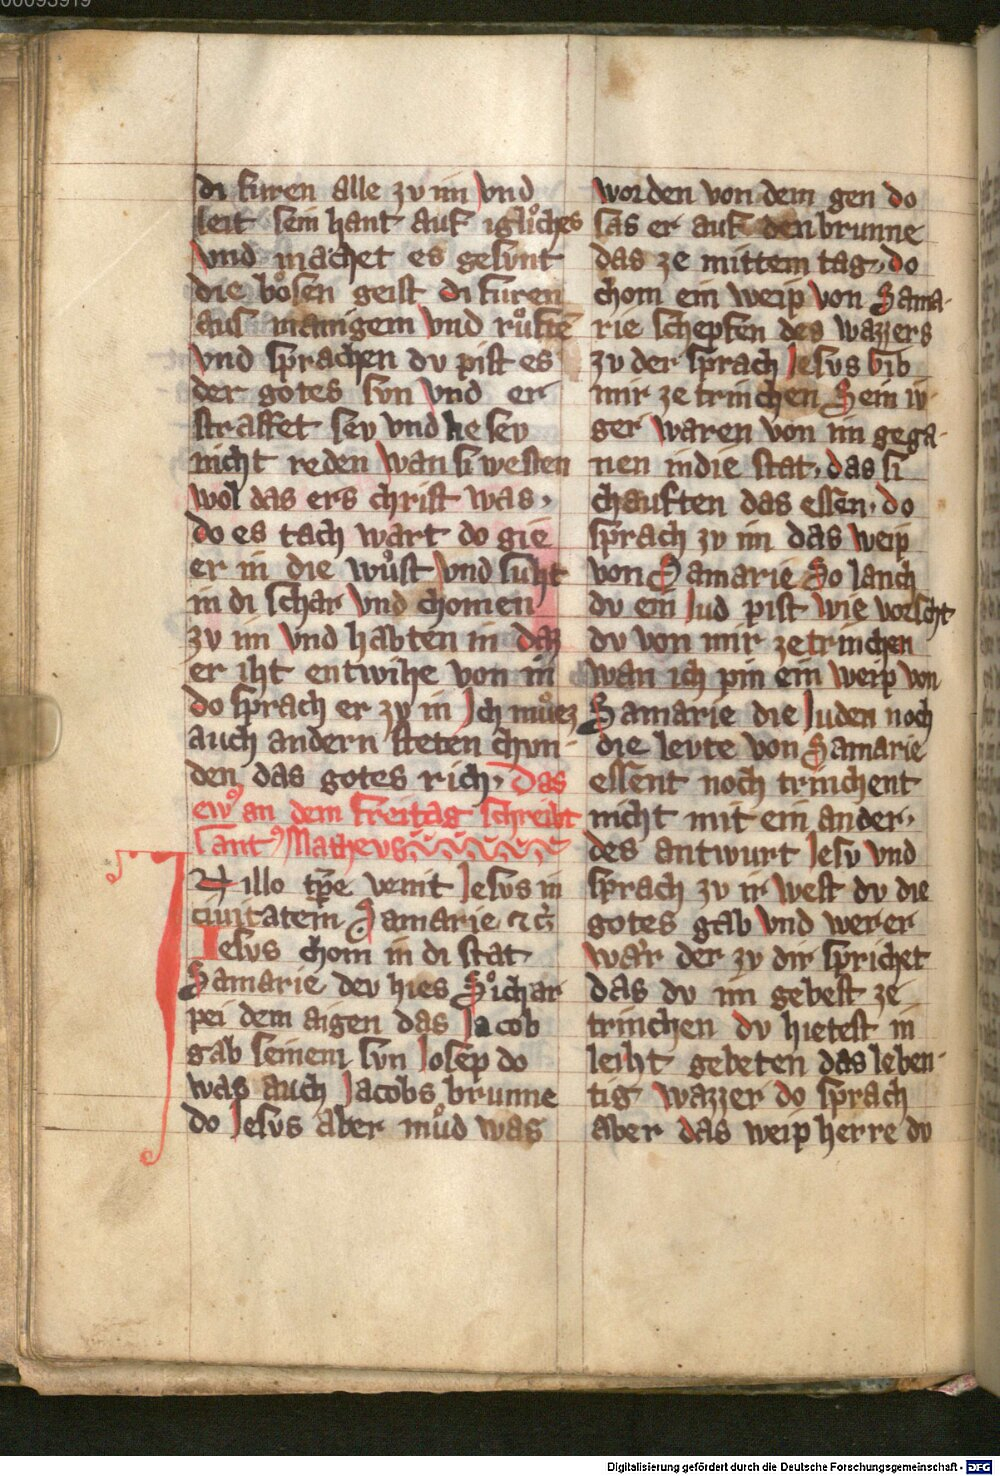 00093919
di furen alle zv im vnd
leit sein hant auf igliches
vnd machet es gesvnt
die bösen geist di furen
aus manigem vnd růften
vnd sprachen dv pist es
der gotes svn vnd er
straffet sev vnd lie sev
nicht reden wan si westen
wol das ers christ was·
do es tach wart do gie
er in die wůst vnd suht
in di schar vnd chomen
zv im vnd habten in daz
er iht entwihe von in
do sprach er zv in Jch můez
auch andern steten chvn-
den das gotes rich· Das
ewͦ an dem freitag schreibt
sant Matheus
Jn illo tp̄e venit Jesvs in
ciuitatem Samarie ⁊ cͣ
Jesvs chom in di stat
Samarie dev hies Sichar
pei dem aigen das Jacob
gab seinem svn Josep do
was auch Jacobs brunne
do Jesvs aber můd was
worden von dem gen do
sas er auf den brunne
das ze mittem tag· do
chom ein weip von Sama-
rie schepfen des wazzers
zv der sprach Jesvs Gib
mir ze trinchen Sein iv-
ger waren von im gega-
nen in die stat· das si
chauften das essen· do
sprach zv im das weip
von Samarie So lanch
dv ein Jud pist wie vorscht
dv von mir ze trinchen
wan ich pin ein weip von
Samarie die Juden noch
die levte von Samarie
essent noch trinchent
nicht mit ein ander·
des antwurt Jesv vnd
sprach zv ir west dv die
gotes gab vnd wer er
wär der zv dir sprichet
das dv im gebest ze
trinchen dv hietest in
leiht gebeten das leben-
tig wazzer do sprach
aber das weip herre dv
Digitalisierung gefördert durch die Deutsche Forschungsgemeinschaft - DFG